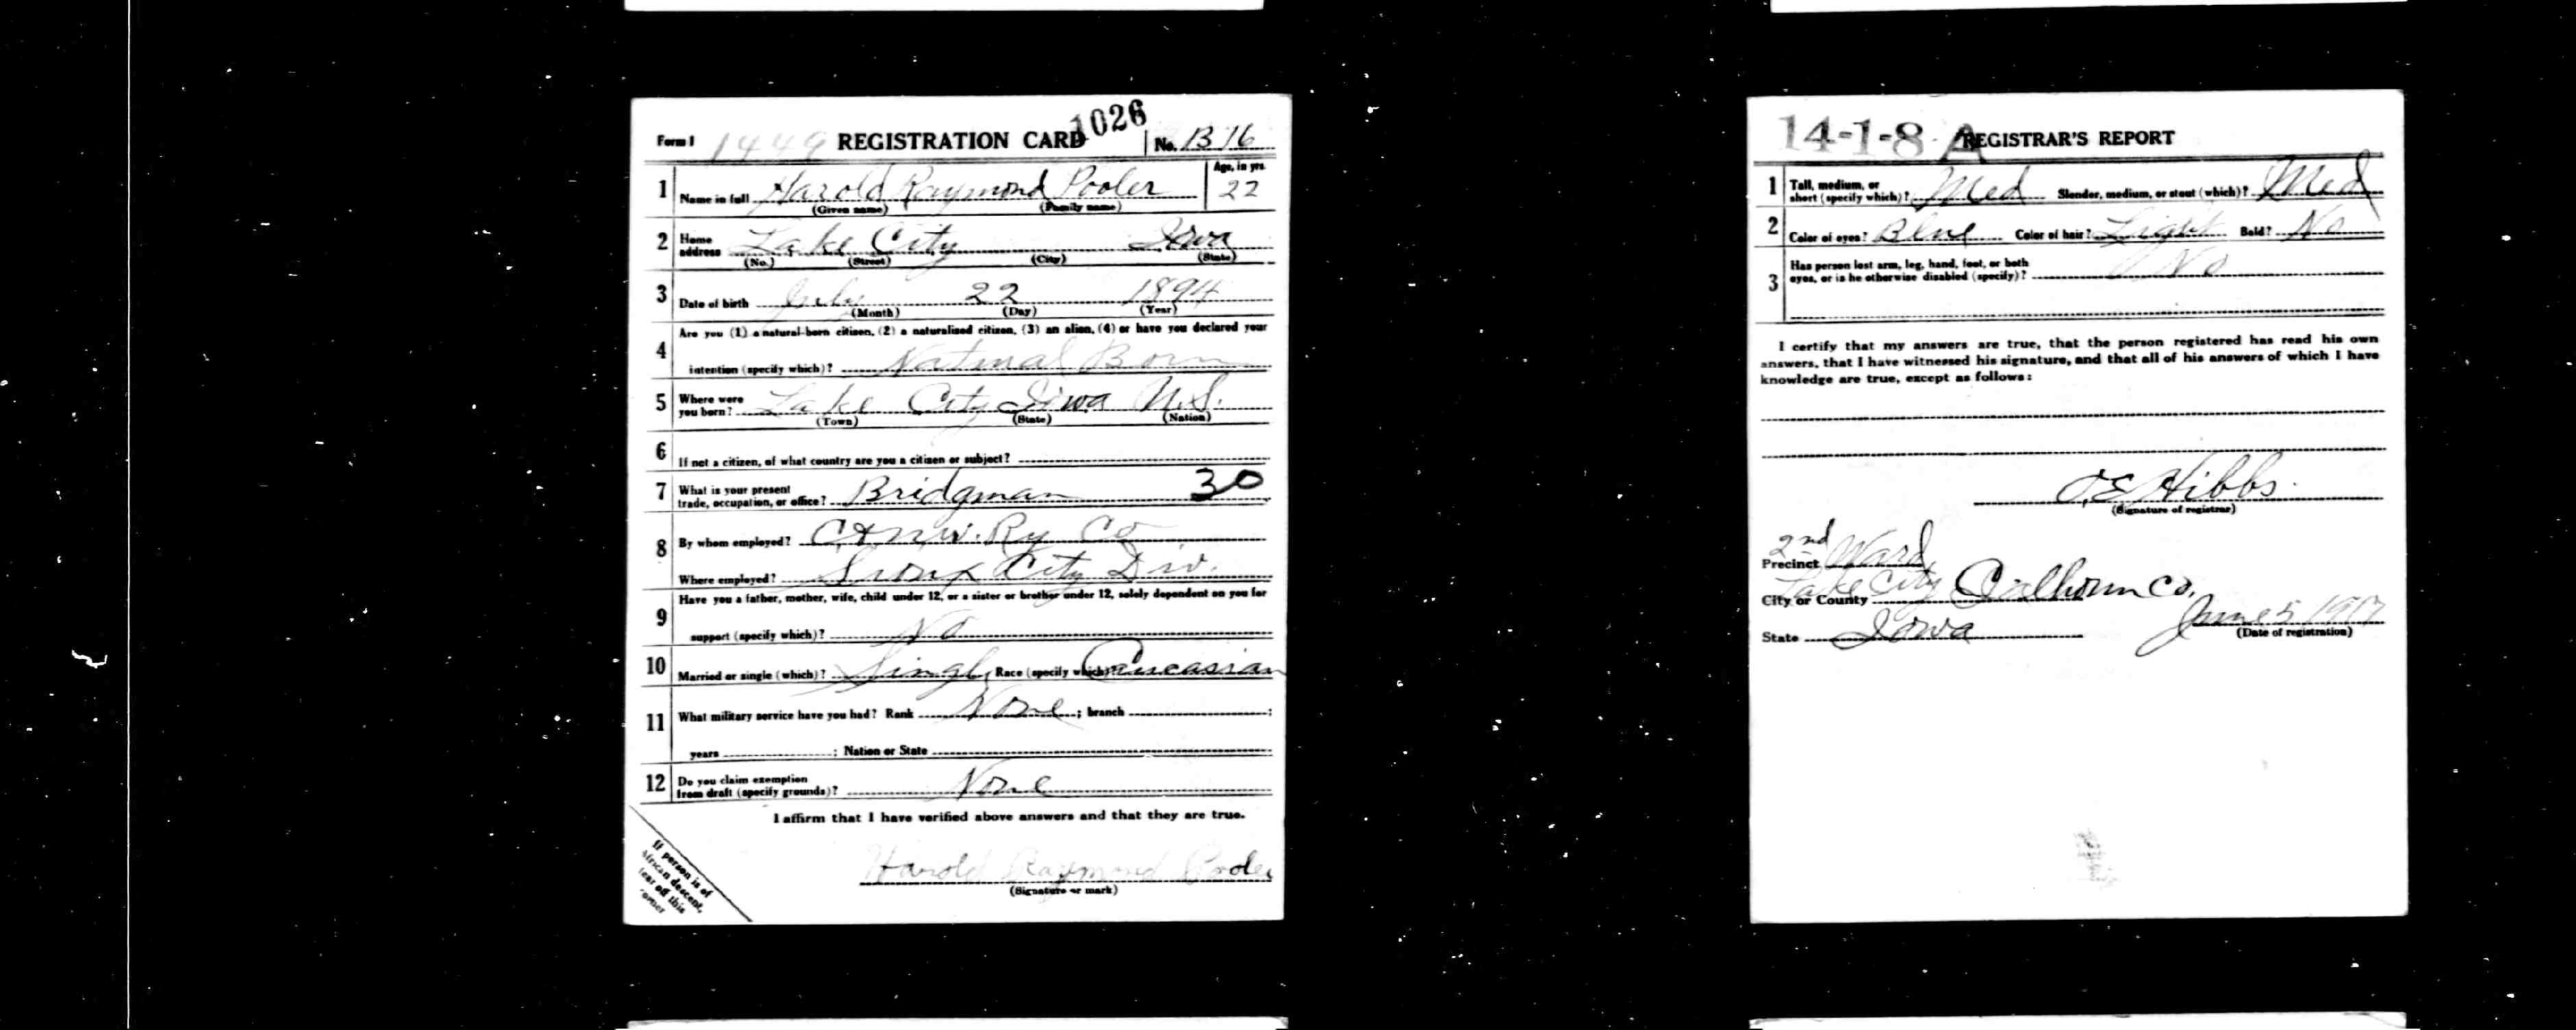 1026
Form 1 1449 REGISTRATION CARD No. B 16
1 Name in full Harold Raymond Pooler Age, in yrs. 22
(Given name) (Family name)
2 Home address Lake City Iowa
(No.) (Street) (City) (State)
3 Date of birth July 22 1894
(Month) (Day) (Year)
4 Are you (1) a natural-born citizen, (2) a naturalized citizen, (3) an alien, (4) or have you declared your
intention (specify which)? Natural Born
5 Where were you born? Lake City Iowa U.S.
(Town) (State) (Nation)
6 If not a citizen, of what country are you a citizen or subject?
7 What is your present trade, occupation, or office? Bridgman 30
8 By whom employed? C & N.W. Ry Co
Where employed? Sioux City Div.
9 Have you a father, mother, wife, child under 12, or a sister or brother under 12, solely dependent on you for
support (specify which)? No
10 Married or single (which)? Single Race (specify which)? Caucasian
11 What military service have you had? Rank None ; branch ;
years ; Nation or State
12 Do you claim exemption from draft (specify grounds)? None
I affirm that I have verified above answers and that they are true.
Harold Raymond Pooler
(Signature or mark)
If person is of
African descent,
tear off this
corner
14-1-8 A REGISTRAR'S REPORT
1 Tall, medium, or short (specify which)? Med Slender, medium, or stout (which)? Med
2 Color of eyes? Blue Color of hair? Light Bald? No
3 Has person lost arm, leg, hand, foot, or both
eyes, or is he otherwise disabled (specify)? No
I certify that my answers are true, that the person registered has read his own
answers, that I have witnessed his signature, and that all of his answers of which I have
knowledge are true, except as follows:
J.E. Hibbs
(Signature of registrar)
Precinct 2nd Ward
City or County Lake City Calhoun Co.
State Iowa June 5 1917
(Date of registration)